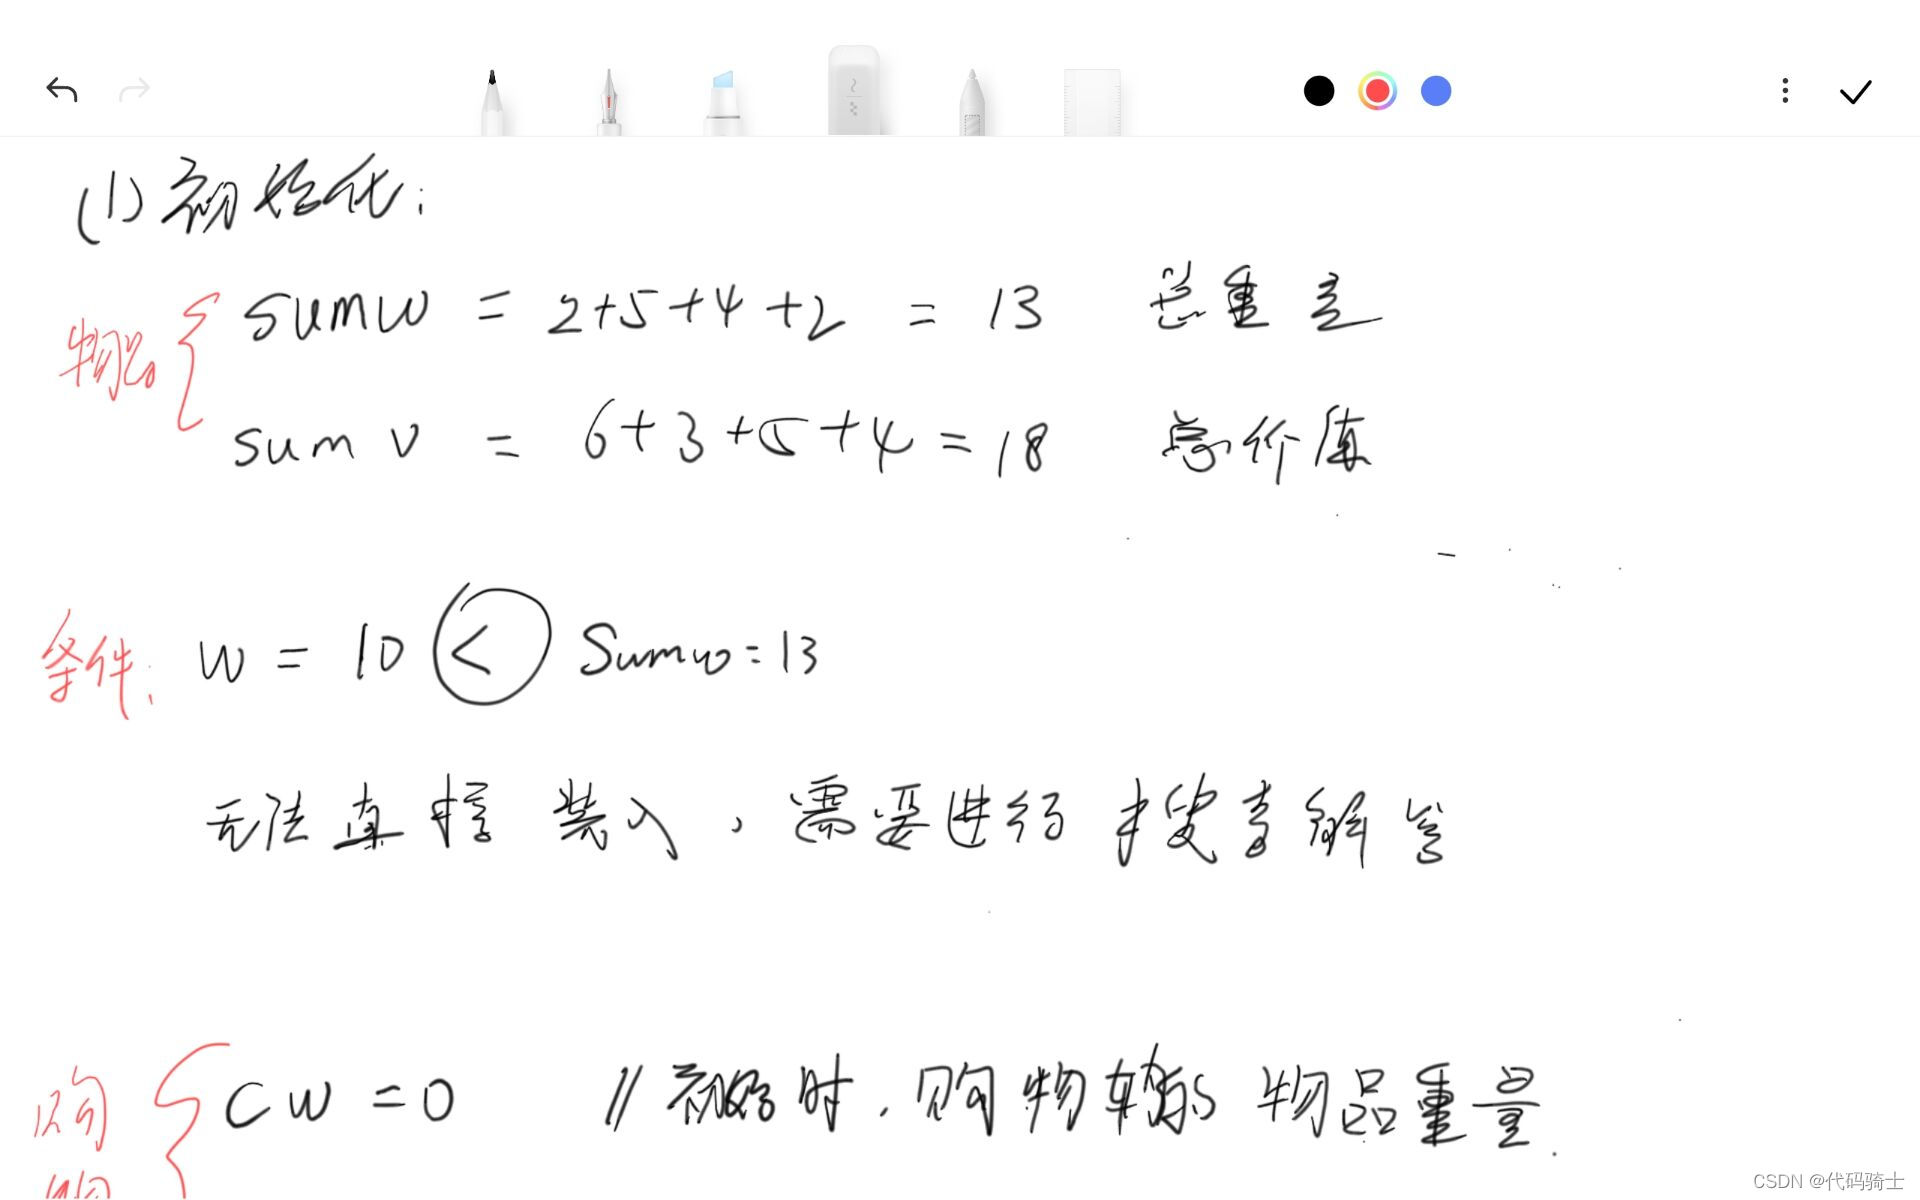 (1) 初始化:
物品 { sumw = 2+5+4+2 = 13 总重量
sum v = 6+3+5+4=18 总价值
条件: W = 10 < Sumw=13
无法直接装入, 需要进行搜索解答
购物 { CW=0 //初始时,购物车的物品重量.
CSDN @代码骑士